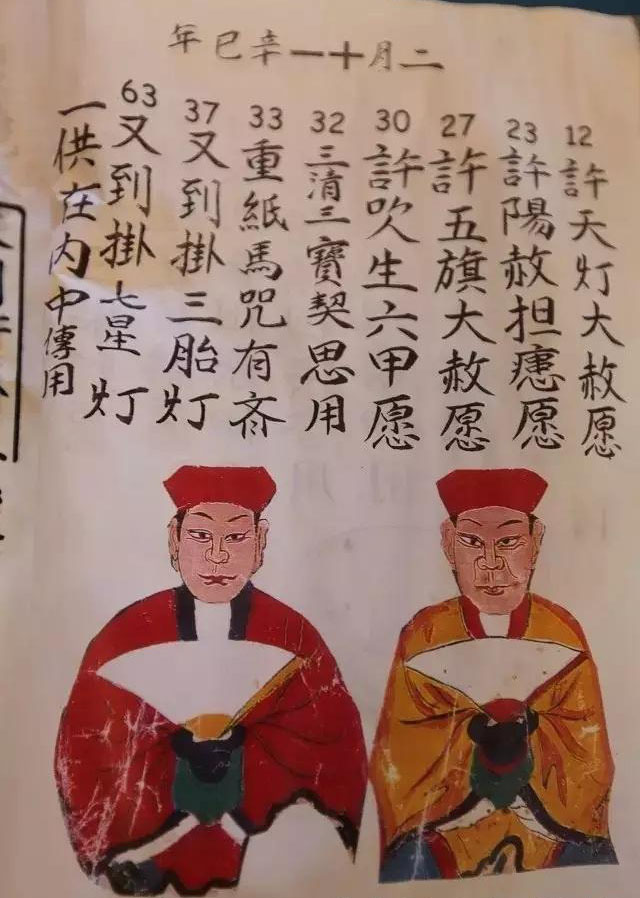 二月十一辛巳年
12 許天灯大赦愿
23 許陽赦担愿
27 許五旗大赦愿
30 許吹生六甲愿
32 三清三寶契思用
33 重紙馬咒有斎
37 又到掛三胎灯
63 又到掛七星灯
一供在内中傳用